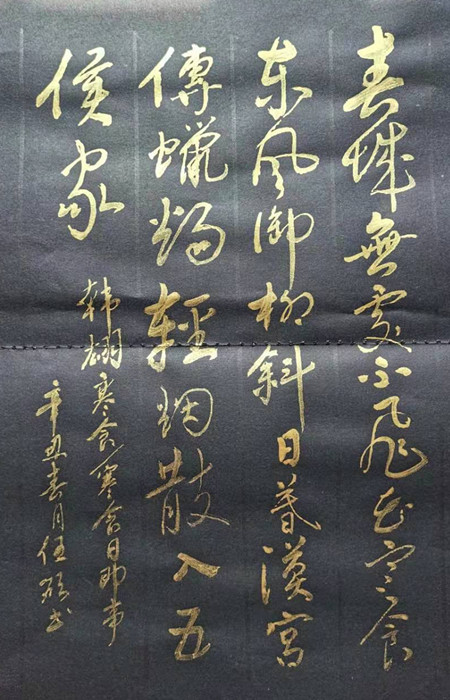 春城無處不飛花寒食
东風御柳斜日暮漢宮
傳蠟燭輕烟散入五
侯家
韩翃寒食/寒食日即事
辛丑春月任书